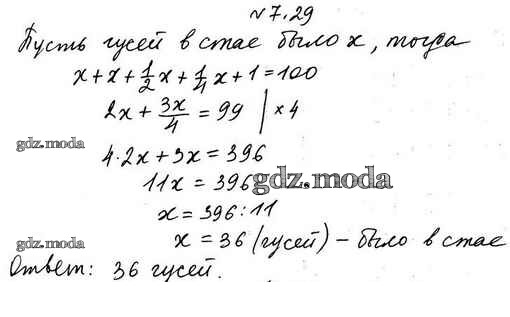 №7.29
Пусть гусей в стае было x, тогда
x+x+1/2x+1/4x+1=100
2x+3x/4=99 |×4
gdz.moda
4·2x+3x=396
11x=396
gdz.moda
x=396:11
x=36 (гусей) – было в стае
gdz.moda
Ответ: 36 гусей.